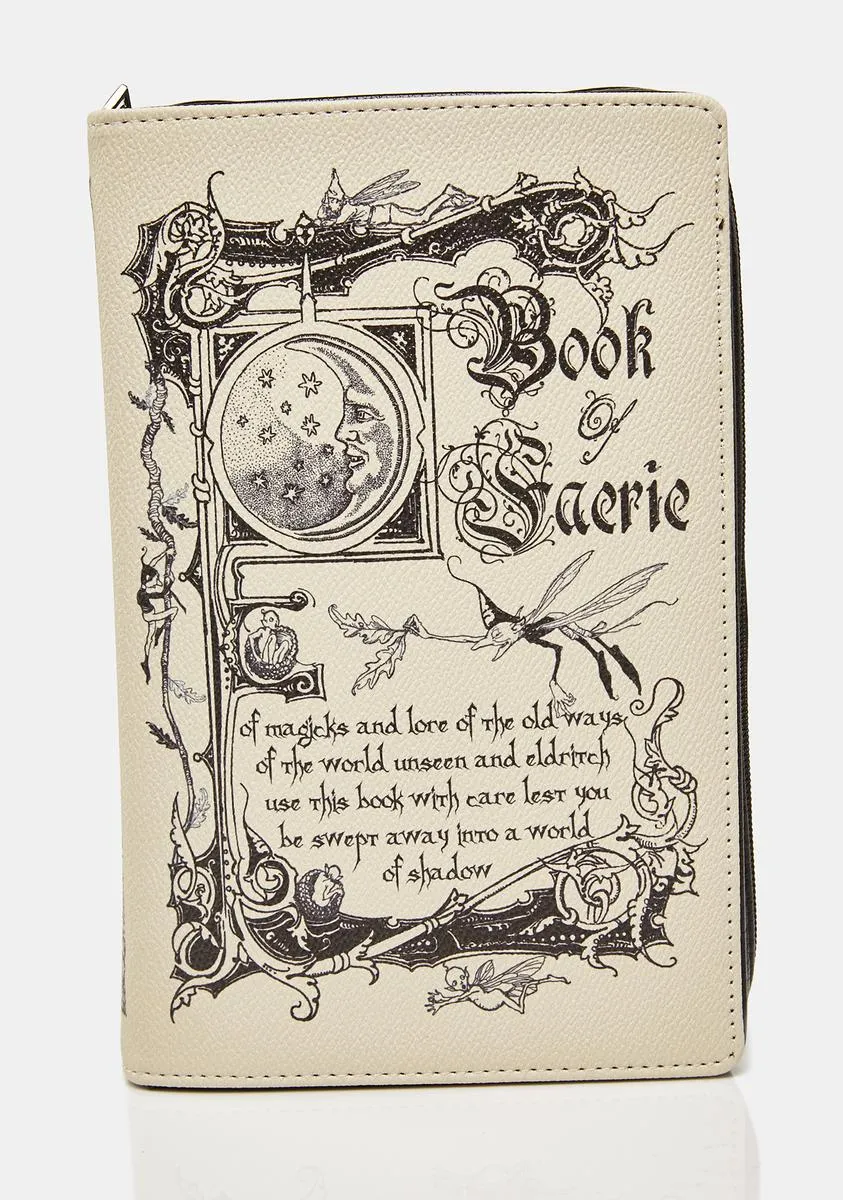 Book
of
Faerie
of magicks and lore of the old ways
of the world unseen and eldritch
use this book with care lest you
be swept away into a world
of shadow